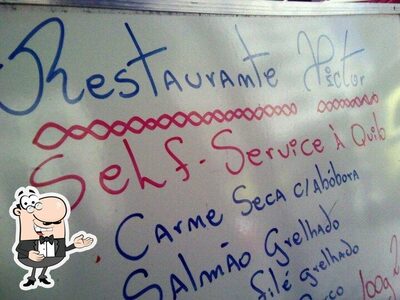 Restaurante Victor
Self-Service à Quilo
Carme Seca c/Abóbora
Salmão Grelhado
Filé grelhado
100g